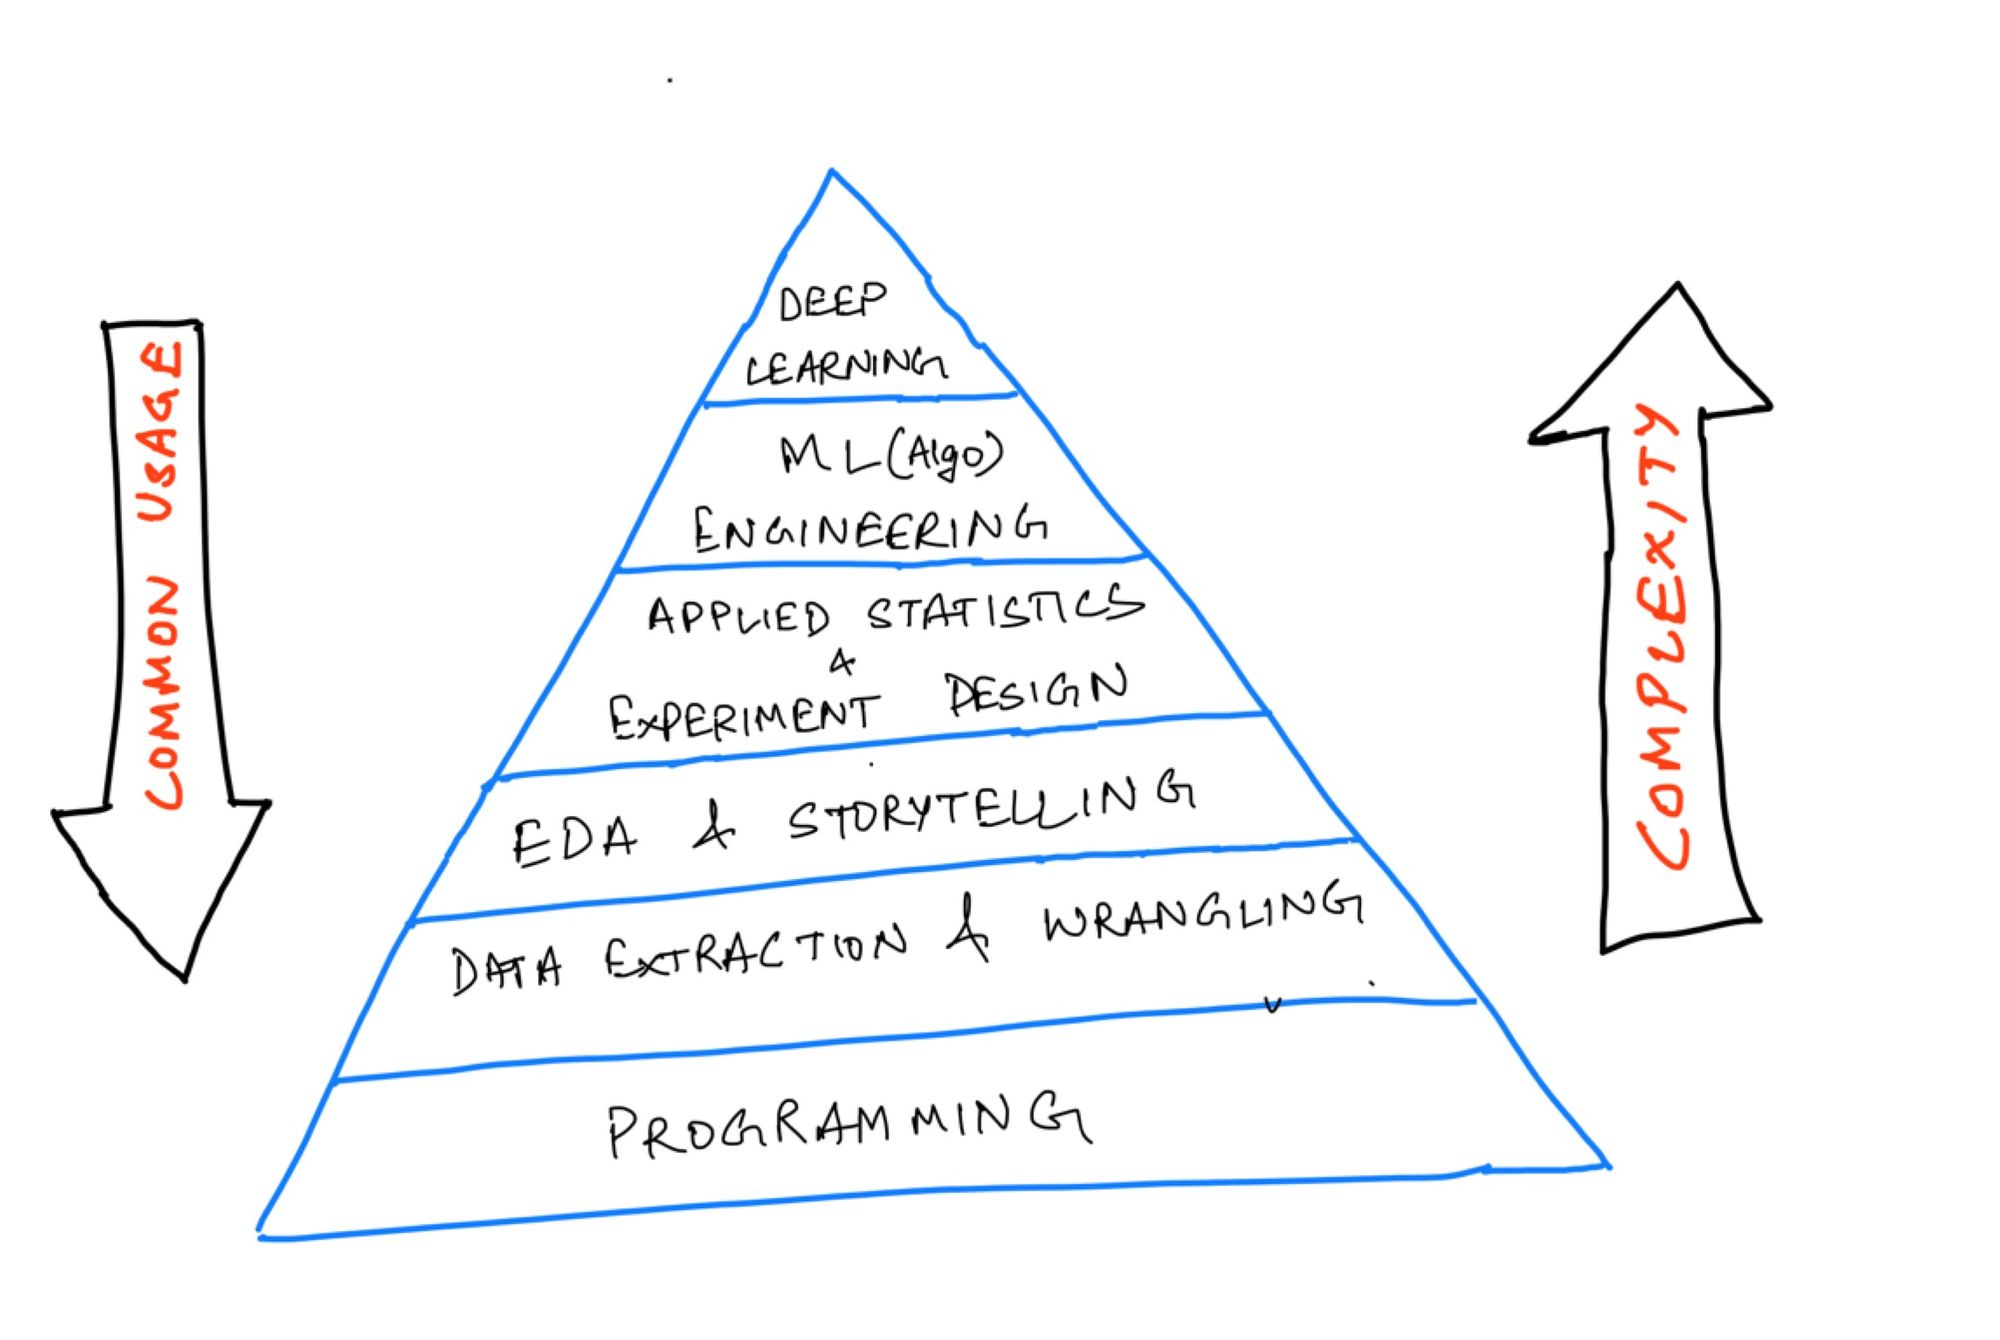 COMMON USAGE
DEEP
LEARNING
ML (Algo)
ENGINEERING
APPLIED STATISTICS
&
EXPERIMENT DESIGN
EDA & STORYTELLING
DATA EXTRACTION & WRANGLING
PROGRAMMING
COMPLEXITY